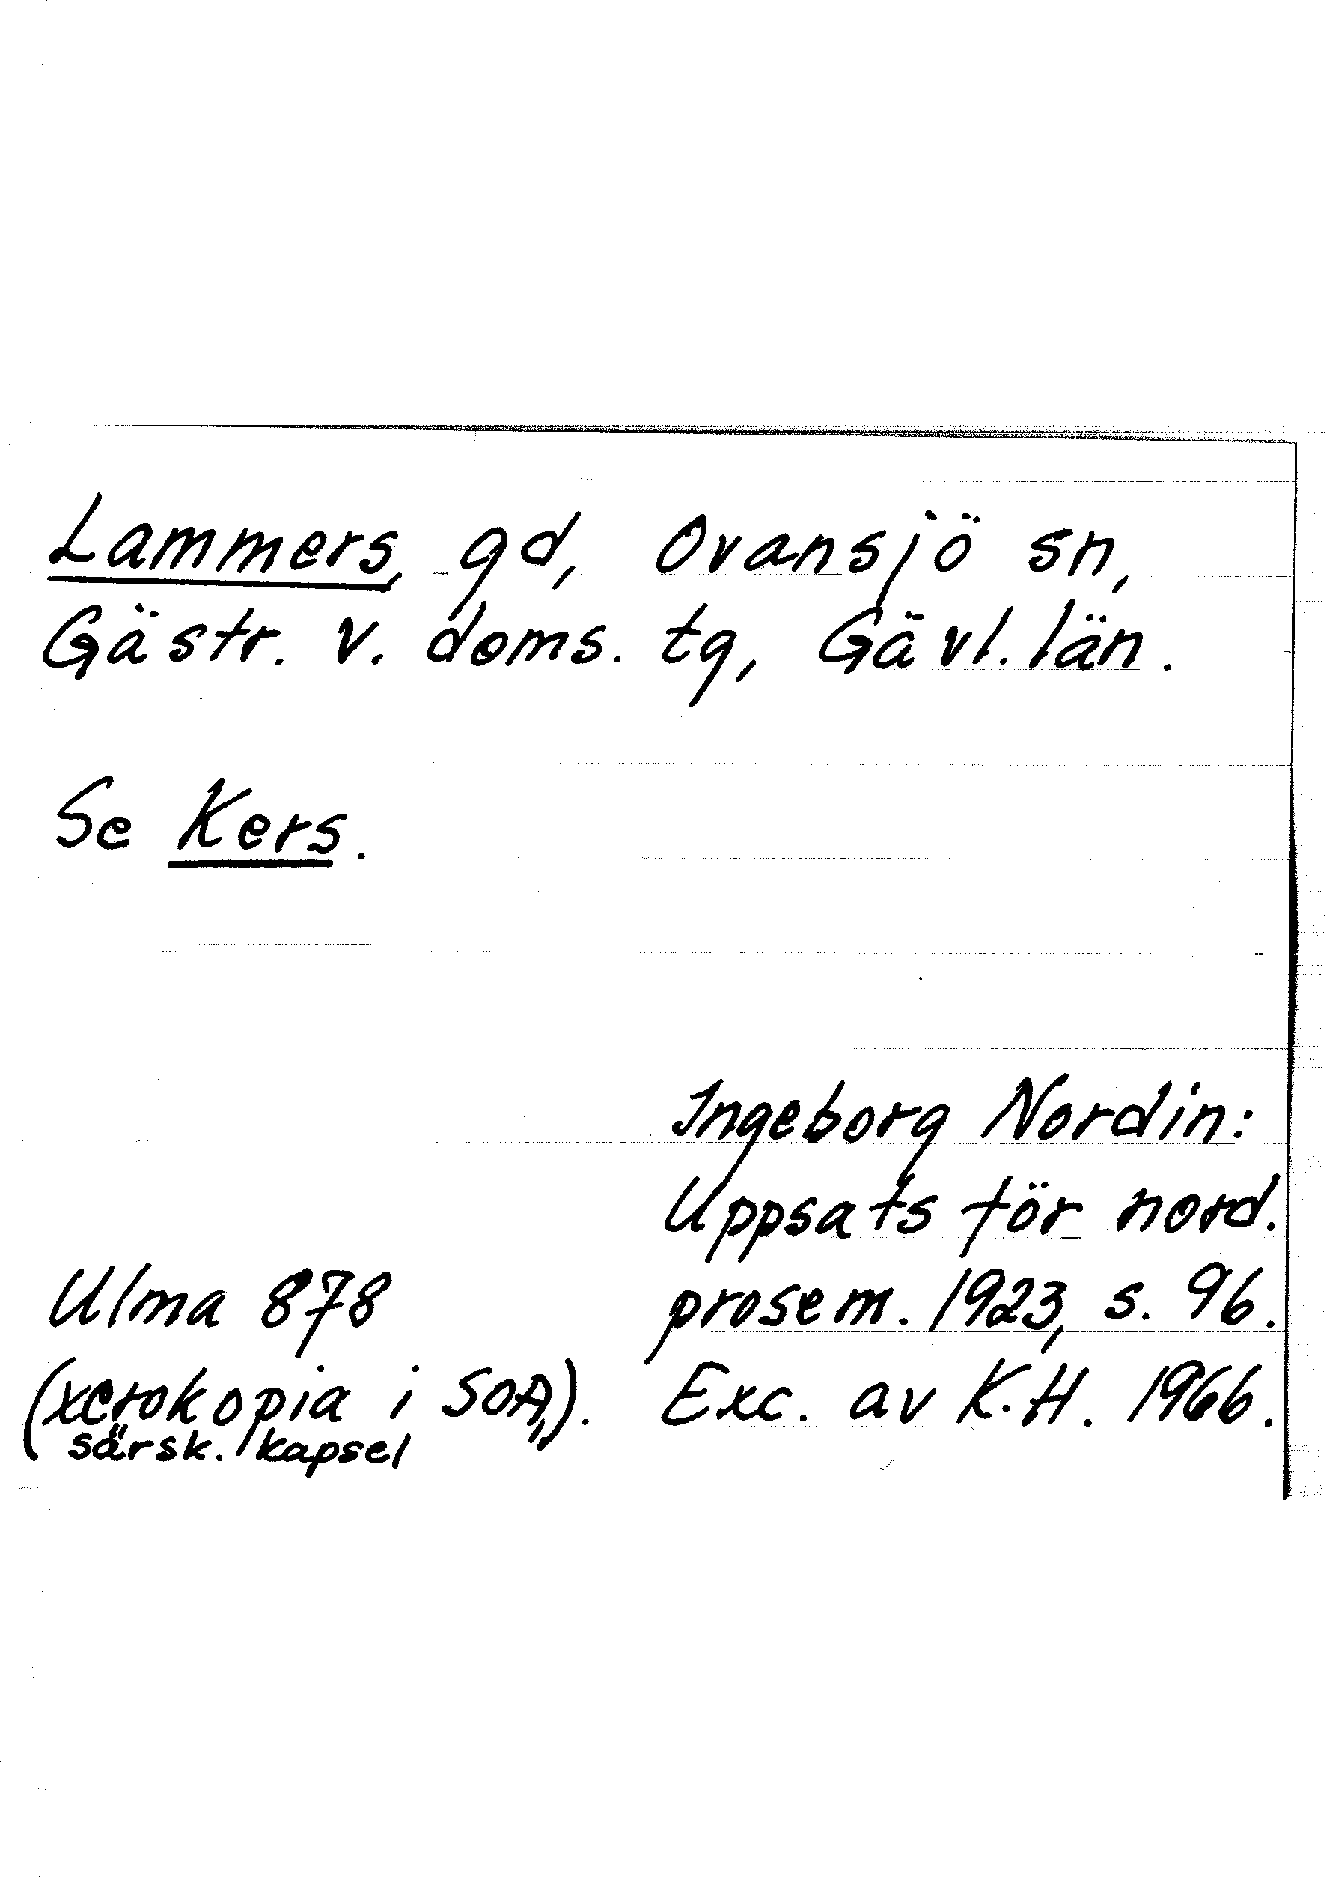 Lammers, gd, Ovansjö sn,
Gästr. v. doms. tg, Gävl. län.
Se Kers.
Ingeborg Nordin:
Uppsats för nord.
prosem. 1923, s. 96.
Exc. av K.H. 1966.
Ulma 878
(xerokopia i SOA,).
särsk. kapsel